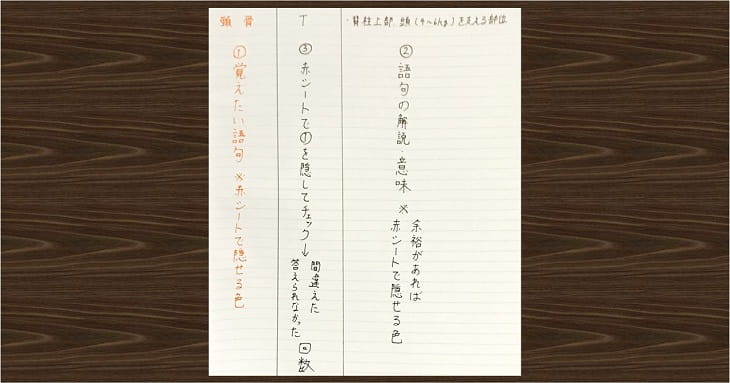 頸骨
T
・脊柱上部、頭(4~6kg)を支える部位
①覚えたい語句 ※赤シートで隠せる色
③赤シートで①を隠してチェック→
間違えた
答えられなかった
回数
②語句の解説・意味 ※
余裕があれば
赤シートで隠せる色